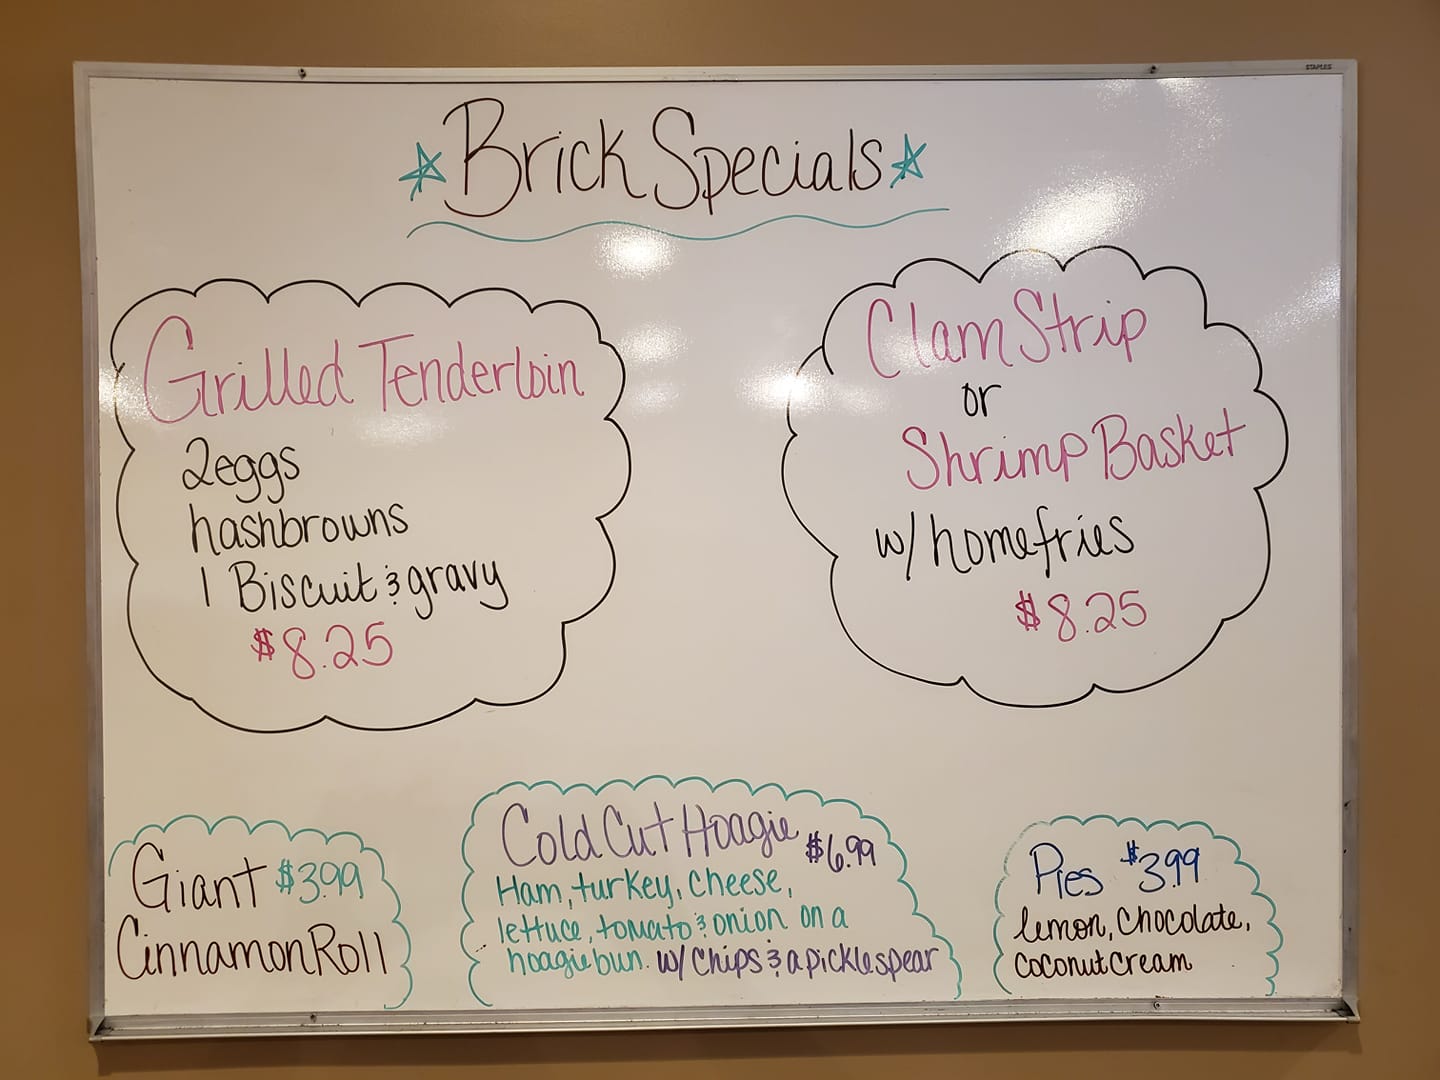 STAPLES
Brick Specials
Grilled Tenderloin
2eggs
hashbrowns
1 Biscuit & gravy
$8.25
Clam Strip
or
Shrimp Basket
w/ homefries
$8.25
Giant $3.99
Cinnamon Roll
Cold Cut Hoagie $6.99
Ham, turkey, cheese,
lettuce, tomato & onion on a
hoagie bun. w/ chips & a pickle spear
Pies $3.99
lemon, chocolate,
coconut cream